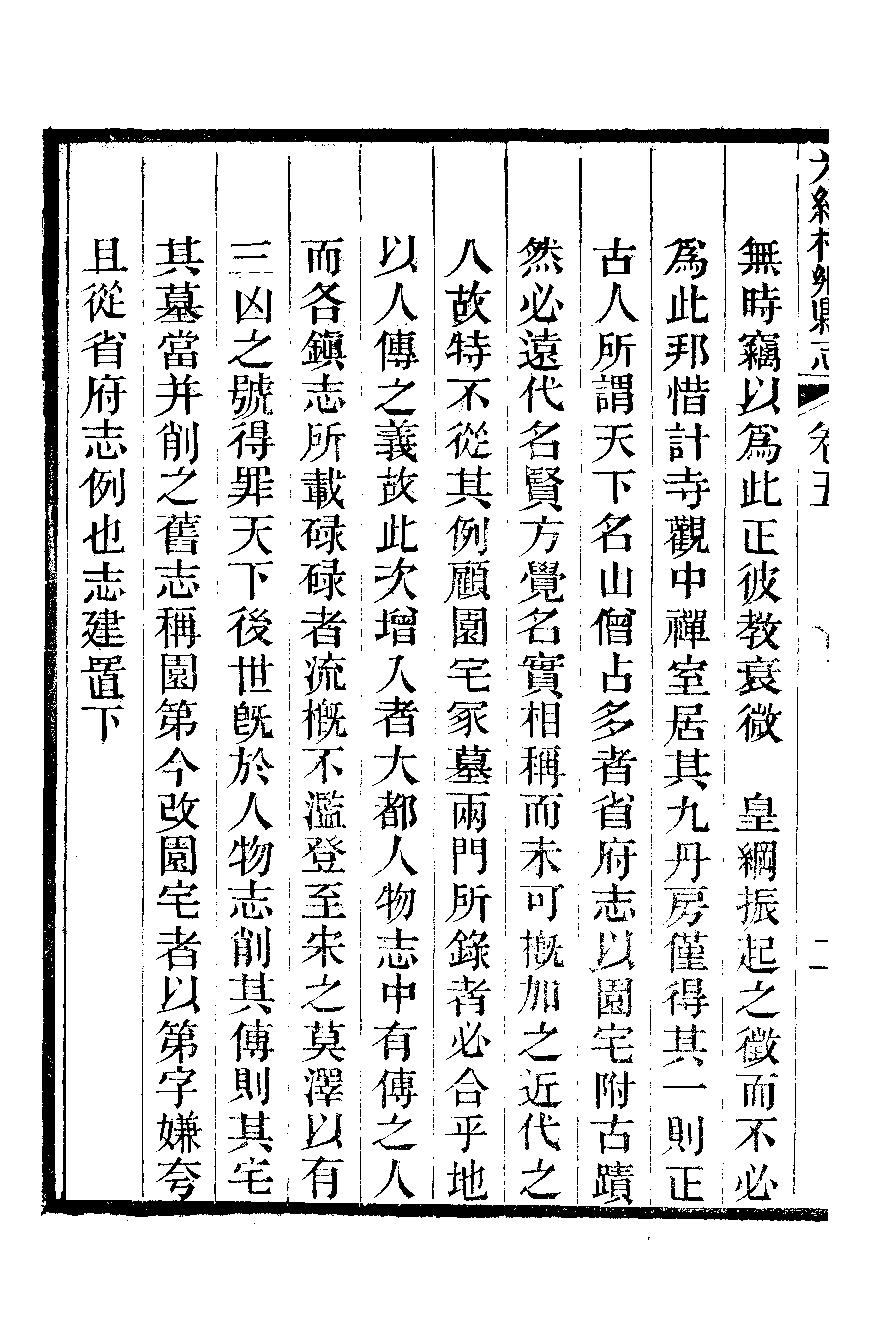 光緒桐鄉縣志 卷五 二
無時竊以爲此正彼教衰微　皇綱振起之徵而不必
爲此邦惜計寺觀中禪室居其九丹房僅得其一則正
古人所謂天下名山僧占多者省府志以園宅附古蹟
然必遠代名賢方覺名實相稱而未可概加之近代之
人故特不從其例顧園宅冢墓兩門所錄者必合乎地
以人傳之義故此次增入者大都人物志中有傳之人
而各鎭志所載碌碌者流概不濫登至宋之莫澤以有
三凶之號得罪天下後世旣於人物志削其傳則其宅
其墓當并削之舊志稱園第今改園宅者以第字嫌夸
且從省府志例也志建置下